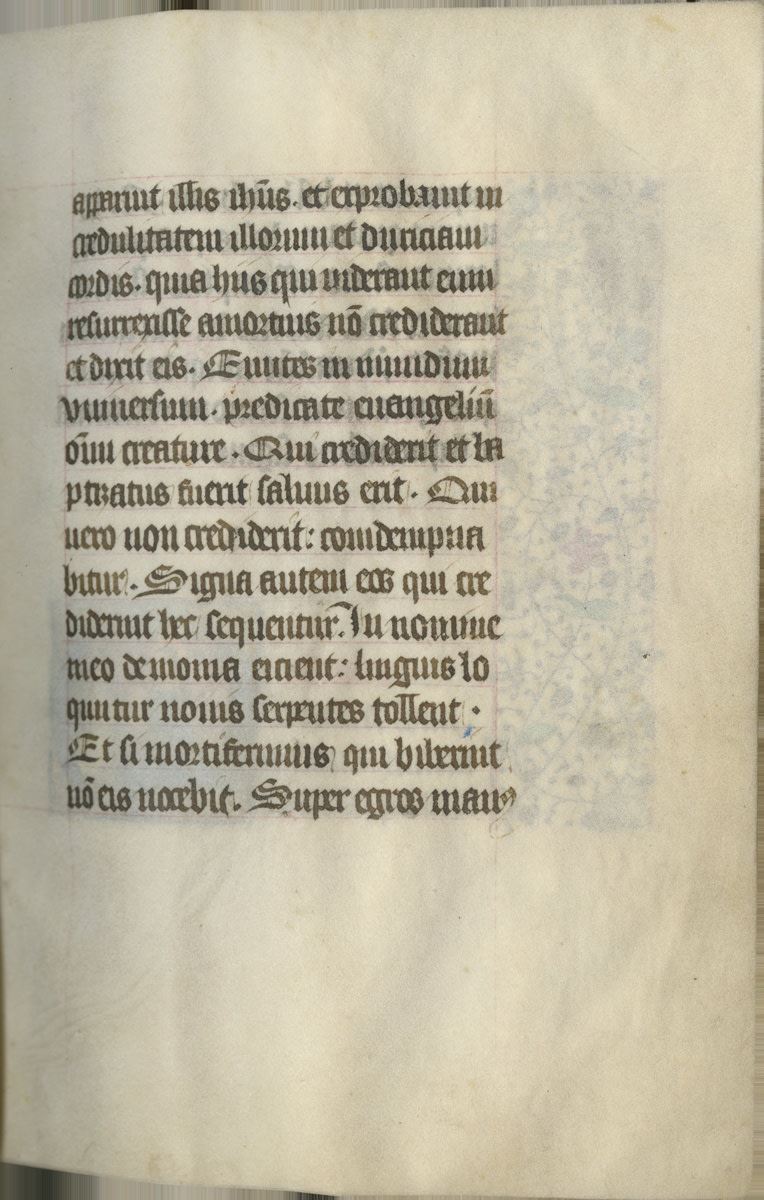 apparuit illis ihūs. et exprobauit in
credulitatem illorum et duriciam
cordis. quia hiis qui uiderant eum
resurrexisse amortuis nō crediderant
et dixit eis. Euntes in mundum
vniuersum. predicate euangeliū
oīni creature. Qui crediderit et ba
ptizatus fuerit saluus erit. Qui
uero non crediderit: comdempna
bitur. Signa autem eos qui cre
diderint hec sequentur. In nomine
meo demonia eicient: linguis lo
quntur nouis serpentes tollent.
Et si mortiferum quid biberint
nō eis nocebit. Super egros manus